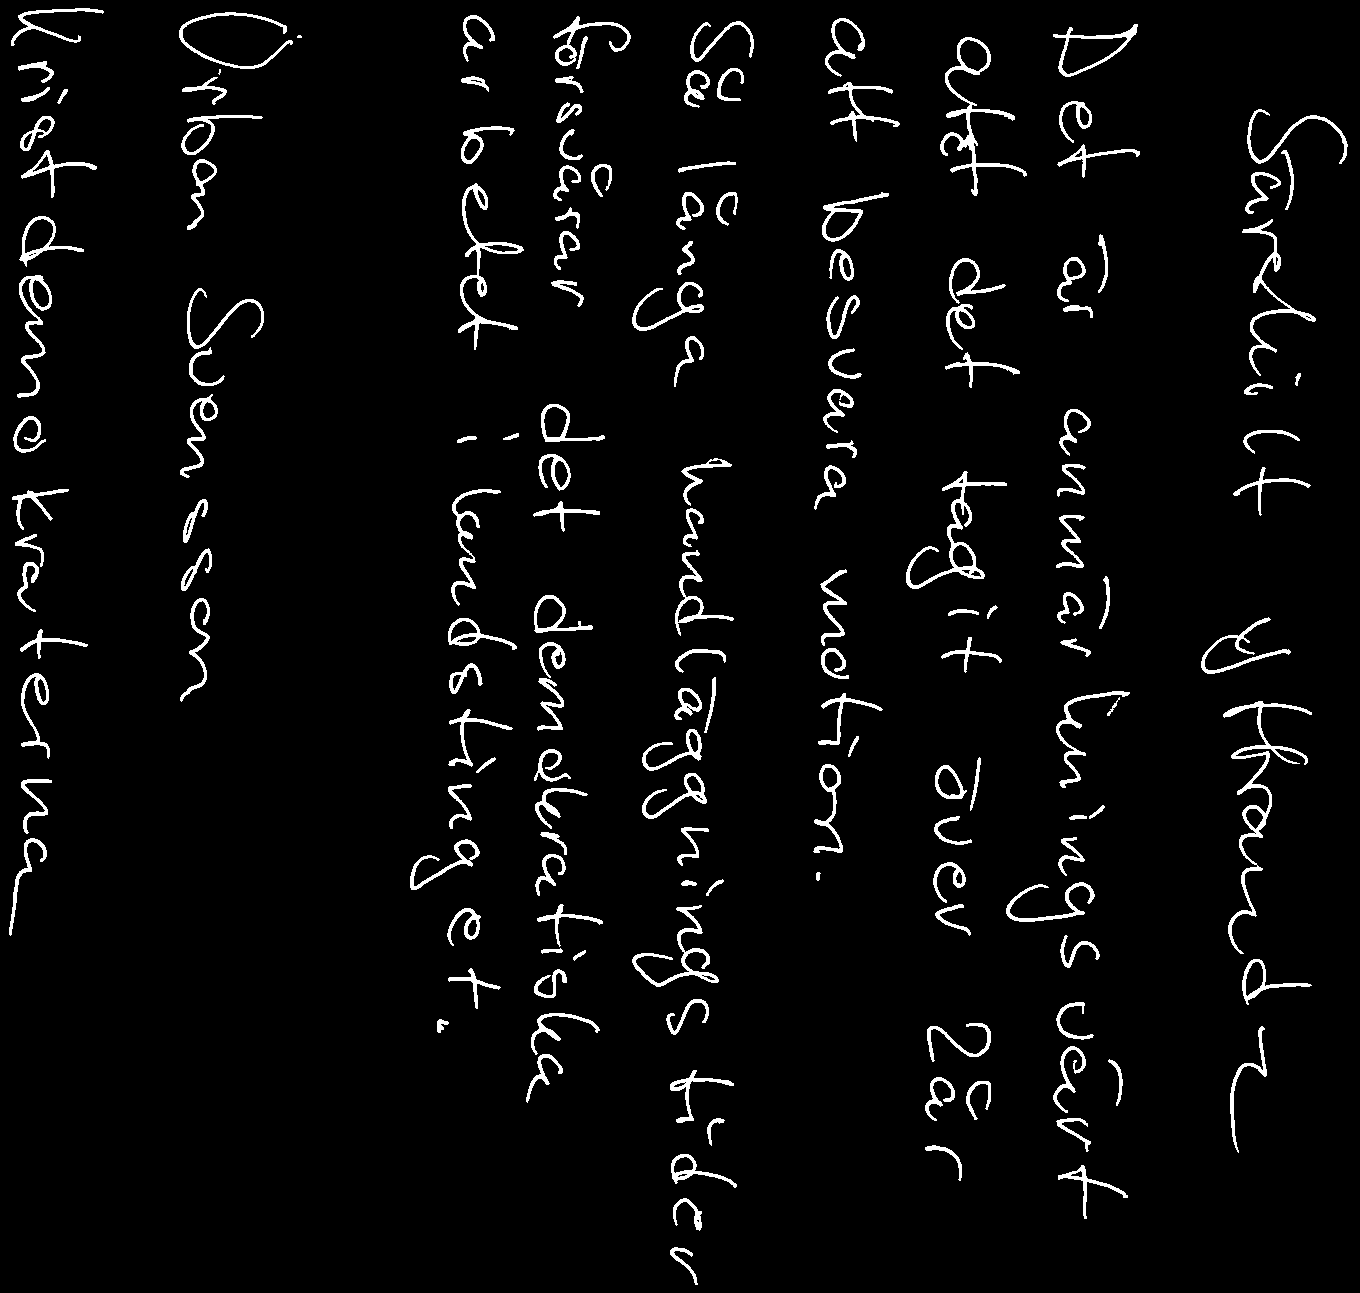 Särskilt yttrande
Det är anmärkningsvärt
att det tagit över 2 år
att besvara motion.
Så långa handläggningstider
försvårar det demokratiska
arbetet i landstinget.
Örban Svensson
Kristdemokraterna